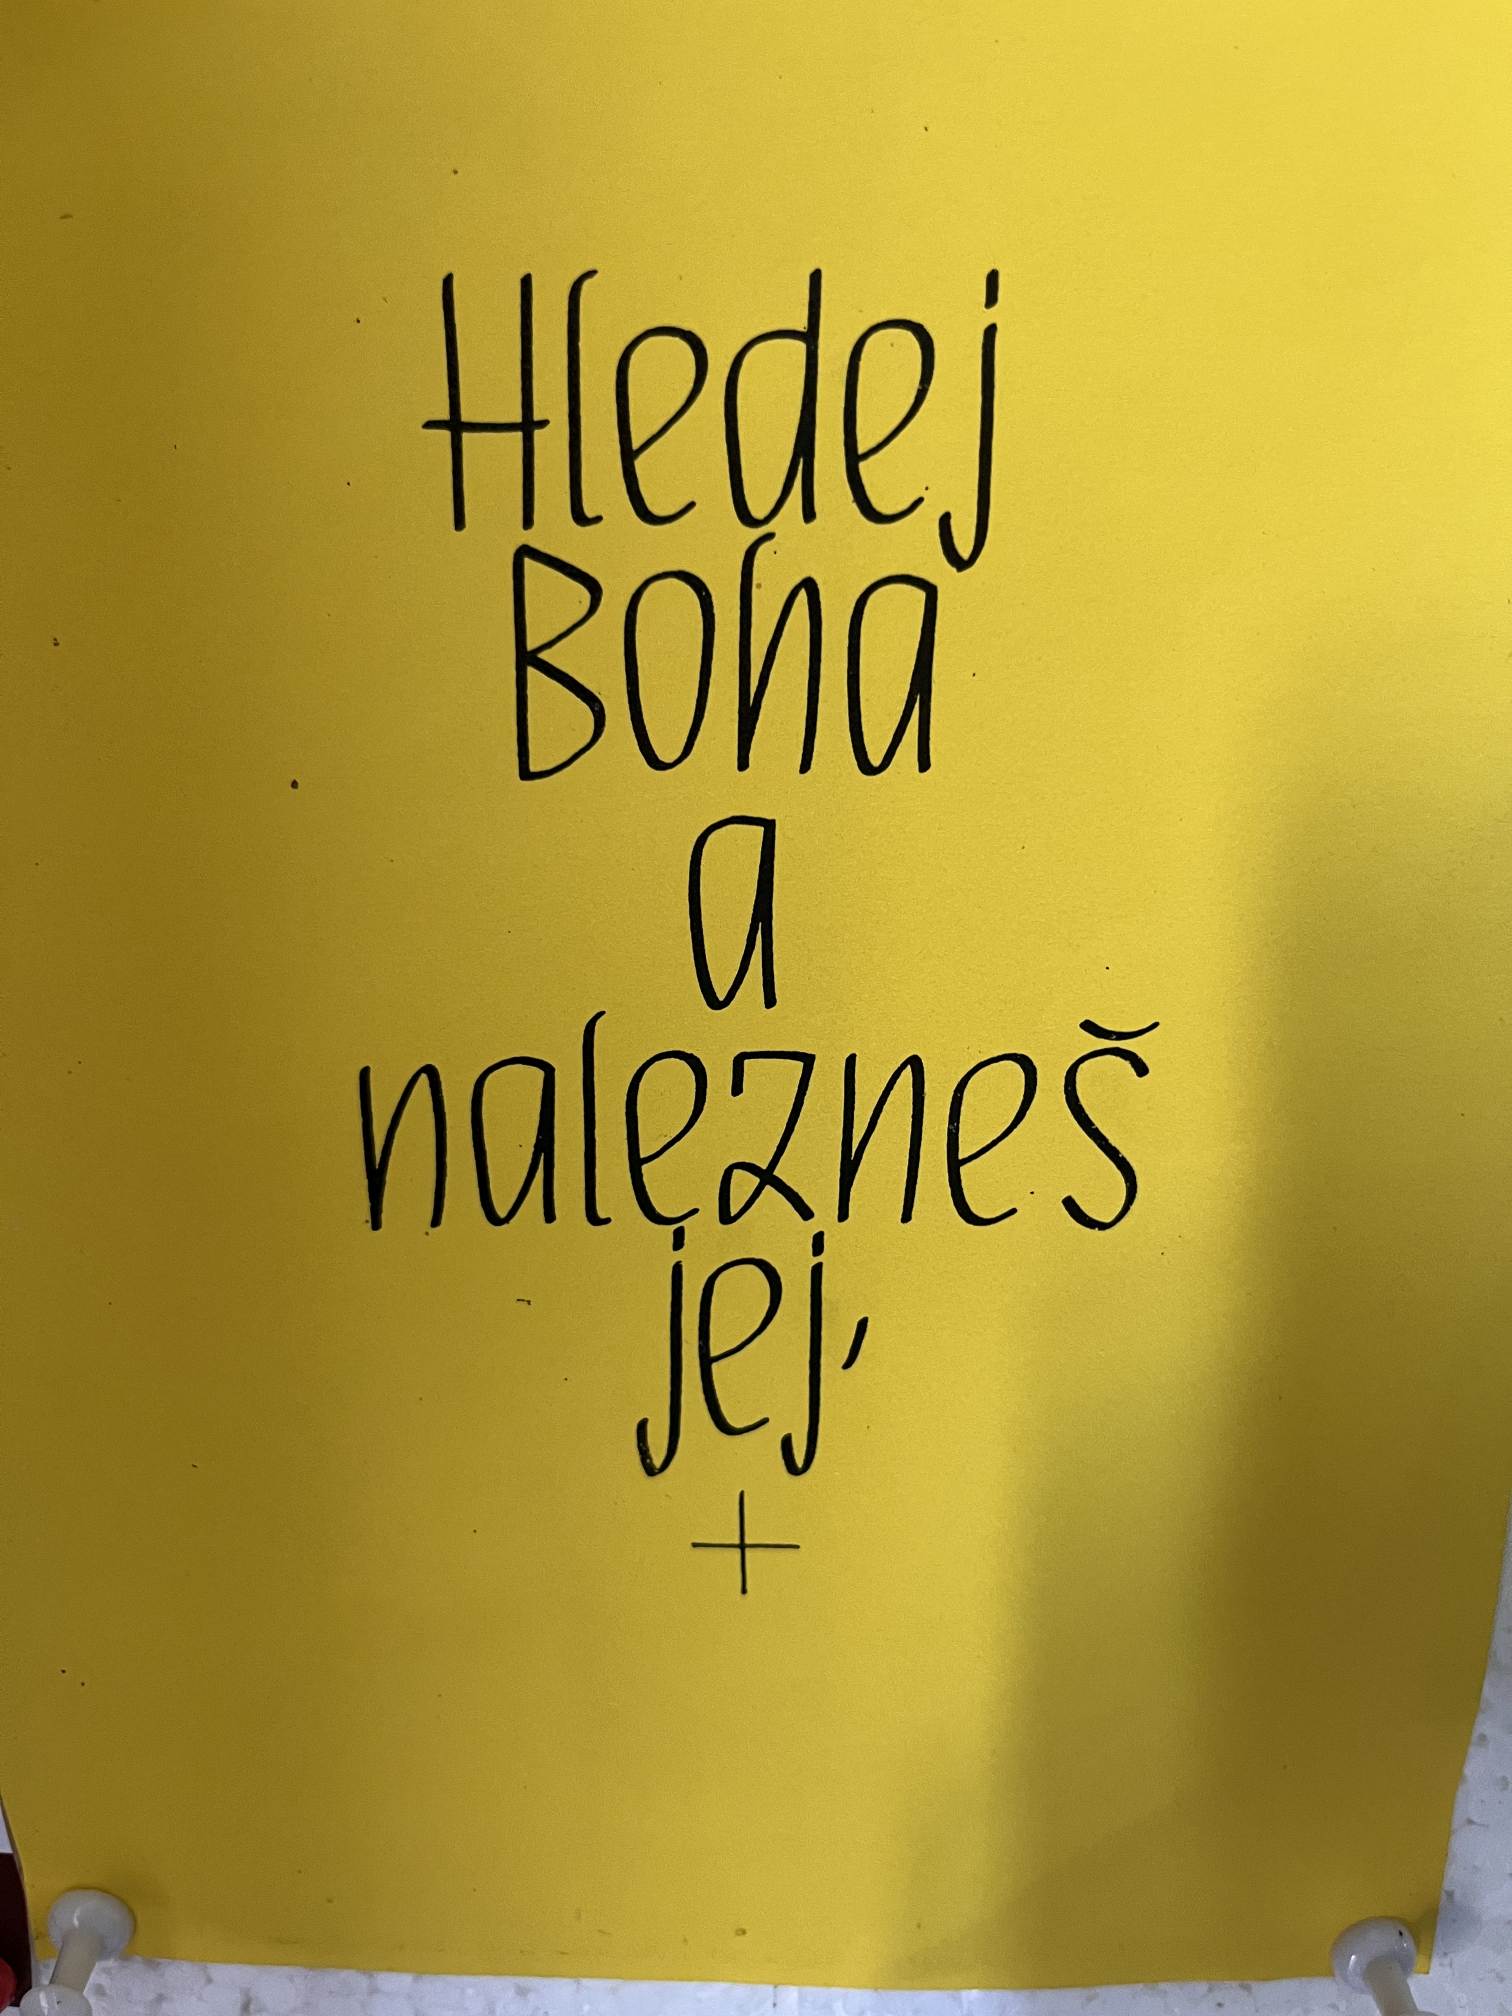 Hledej
Boha
a
nalezneš
jej,
+